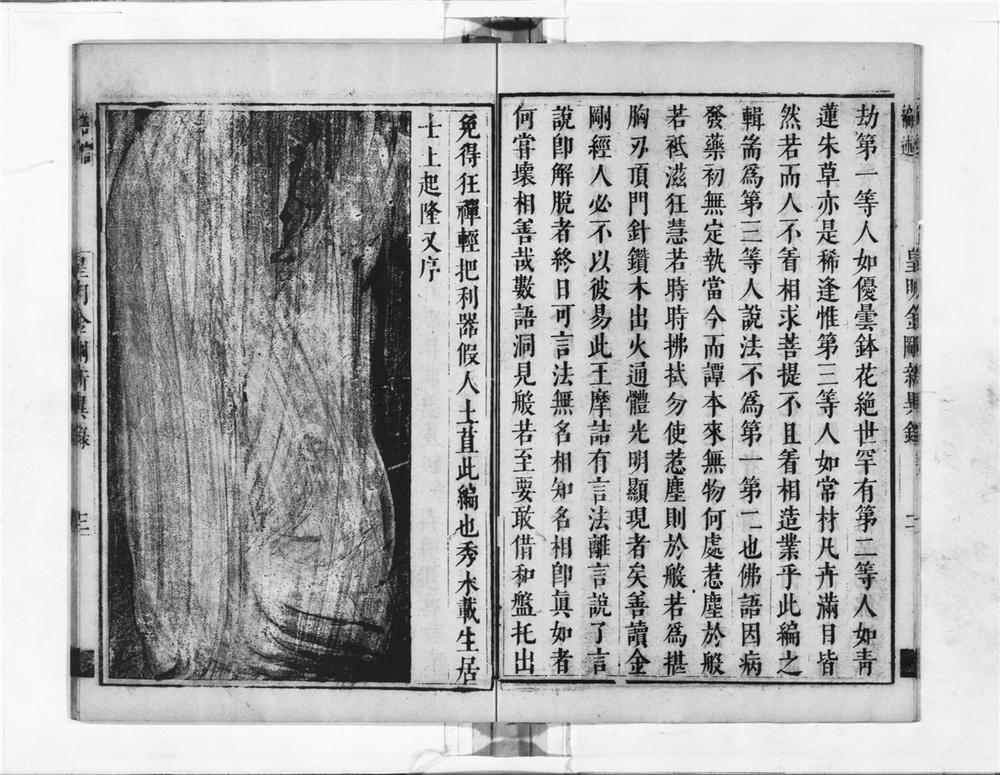 劫第一等人如優曇鉢花絶世罕有第二等人如青
蓮朱草亦是稀逢惟第三等人如常村凡卉滿目皆
然若而人不着相求菩提不且着相造業乎此編之
輯耑爲第三等人說法不爲第一第二也佛語因病
發藥初無定執當今而譚本來無物何處惹塵於般
若祗滋狂慧若時時拂拭勿使惹塵則於般若爲堪
胸刃頂門針鑽木出火通體光明顯現者矣善讀金
剛經人必不以彼易此王摩詰有言法離言說了言
說卽解脫者終日可言法無名相知名相卽眞如者
何甞壞相善哉數語洞見般若至要敢借和盤托出
免得狂禪輕把利器假人土苴此編也秀水載生居
士上起隆又序
皇明金剛新異錄